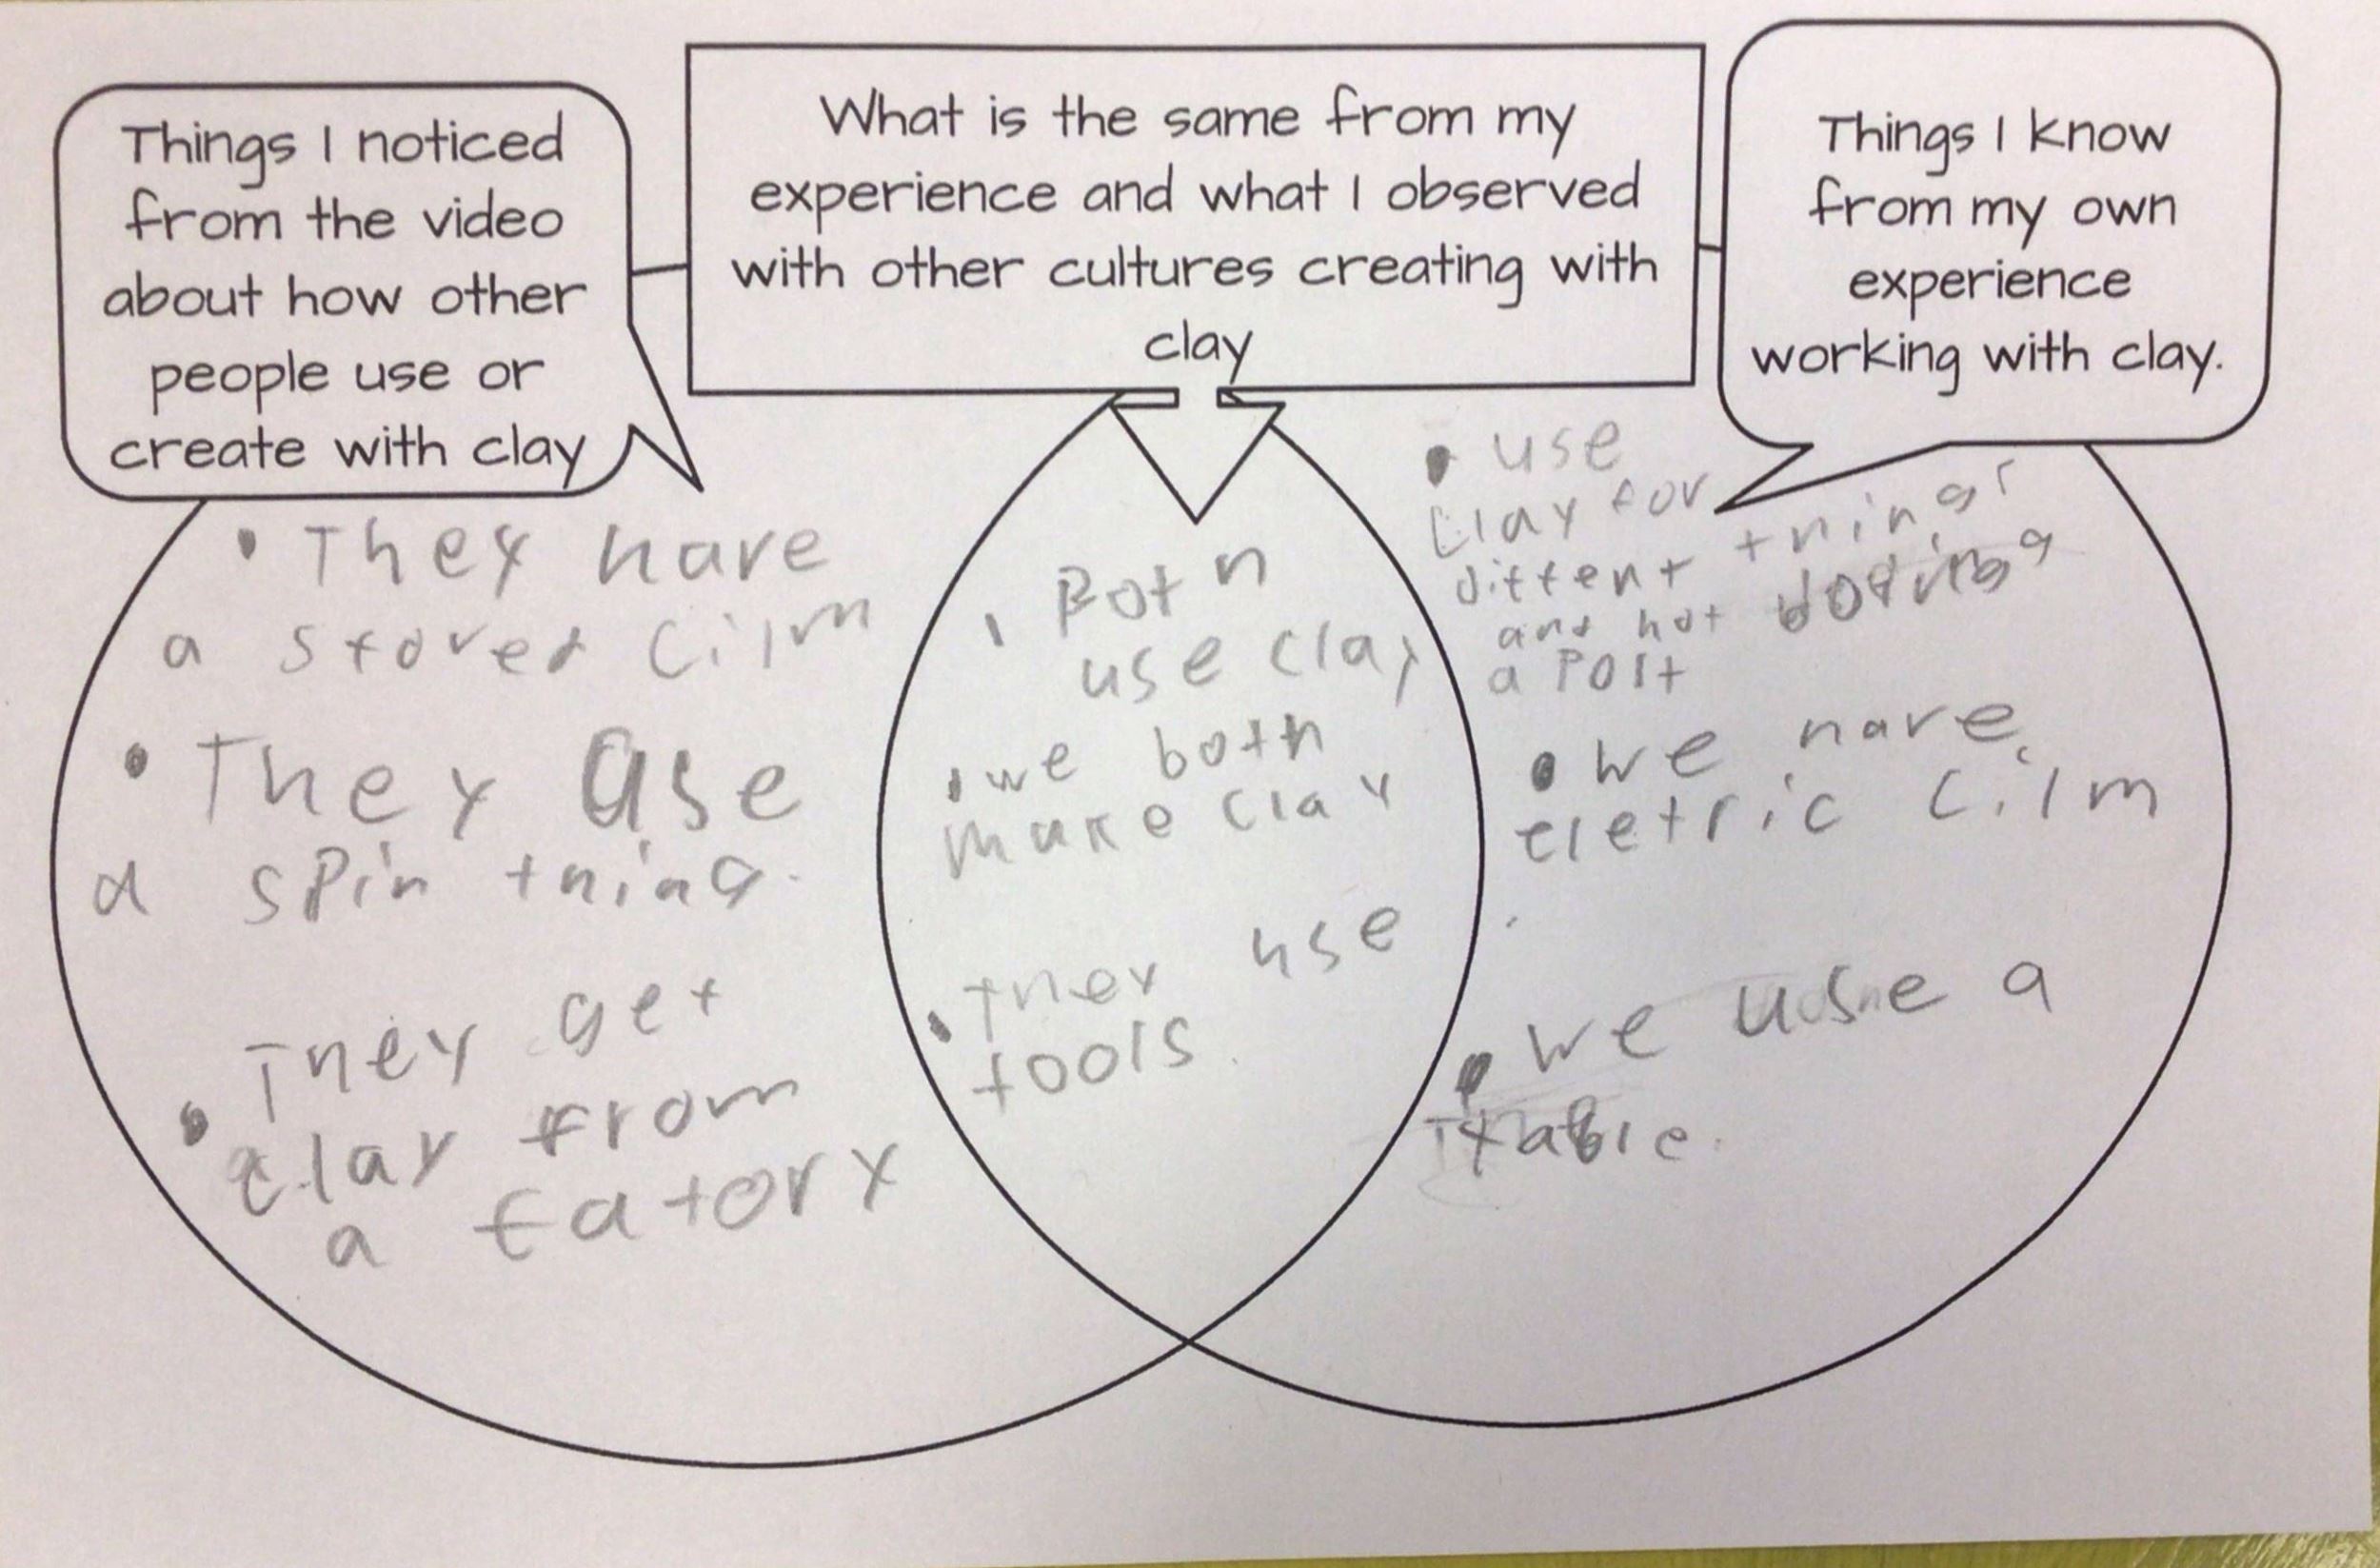 Things I noticed
from the video
about how other
people use or
create with clay
What is the same from my
experience and what I observed
with other cultures creating with
clay
Things I know
from my own
experience
working with clay.
• They have
a stoved Cilm
• They use
a spin thing.
• They get
clay from
a fatory
• Both
use clay
• we both
make clay
• they use
tools.
• use
Clay for
diffent things
and not
a Polt
• we have
eletric Cilm
• we use a
table.